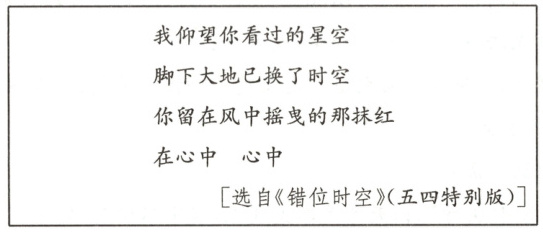 我仰望你看过的星空
脚下大地已换了时空
你留在风中摇曳的那抹红
在心中　心中
[选自《错位时空》(五四特别版)]